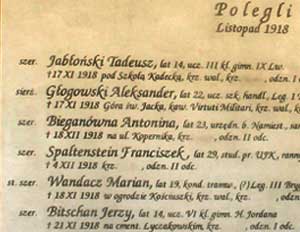 Polegli
Listopad 1918
szer. Jabłoński Tadeusz, lat 14, ucz. III kl. gimn. IX Lw.
† 17 XI 1918 pod Szkołą Kadecką, krz. wal., krz. , odzn. I
sierż. Głogowski Aleksander, lat 22, ucz. szk. handl., Leg. I
† 17 XI 1918 Góra św. Jacka, kaw. Virtuti Militari, krz. wal., krz.
szer. Bieganówna Antonina, lat 23, urzędn. b. Namiest.
† 18 XII 1918 na ul. Kopernika, krz. , odzn. II odc.
szer. Spaltenstein Franciszek, lat 29, stud. pr. UJK, rann
† 4 XII 1918 krz. , odzn. II odc.
st. szer. Wandacz Marian, lat 19, kond. tramw., (?) Leg. III
† 18 XI 1918 w ogrodzie Kościuszki, krz. wal., krz.
szer. Bitschan Jerzy, lat 14, ucz. VI kl. gimn. H. Jordana
† 21 XI 1918 na cment. Łyczakowskim, krz. wal., krz.